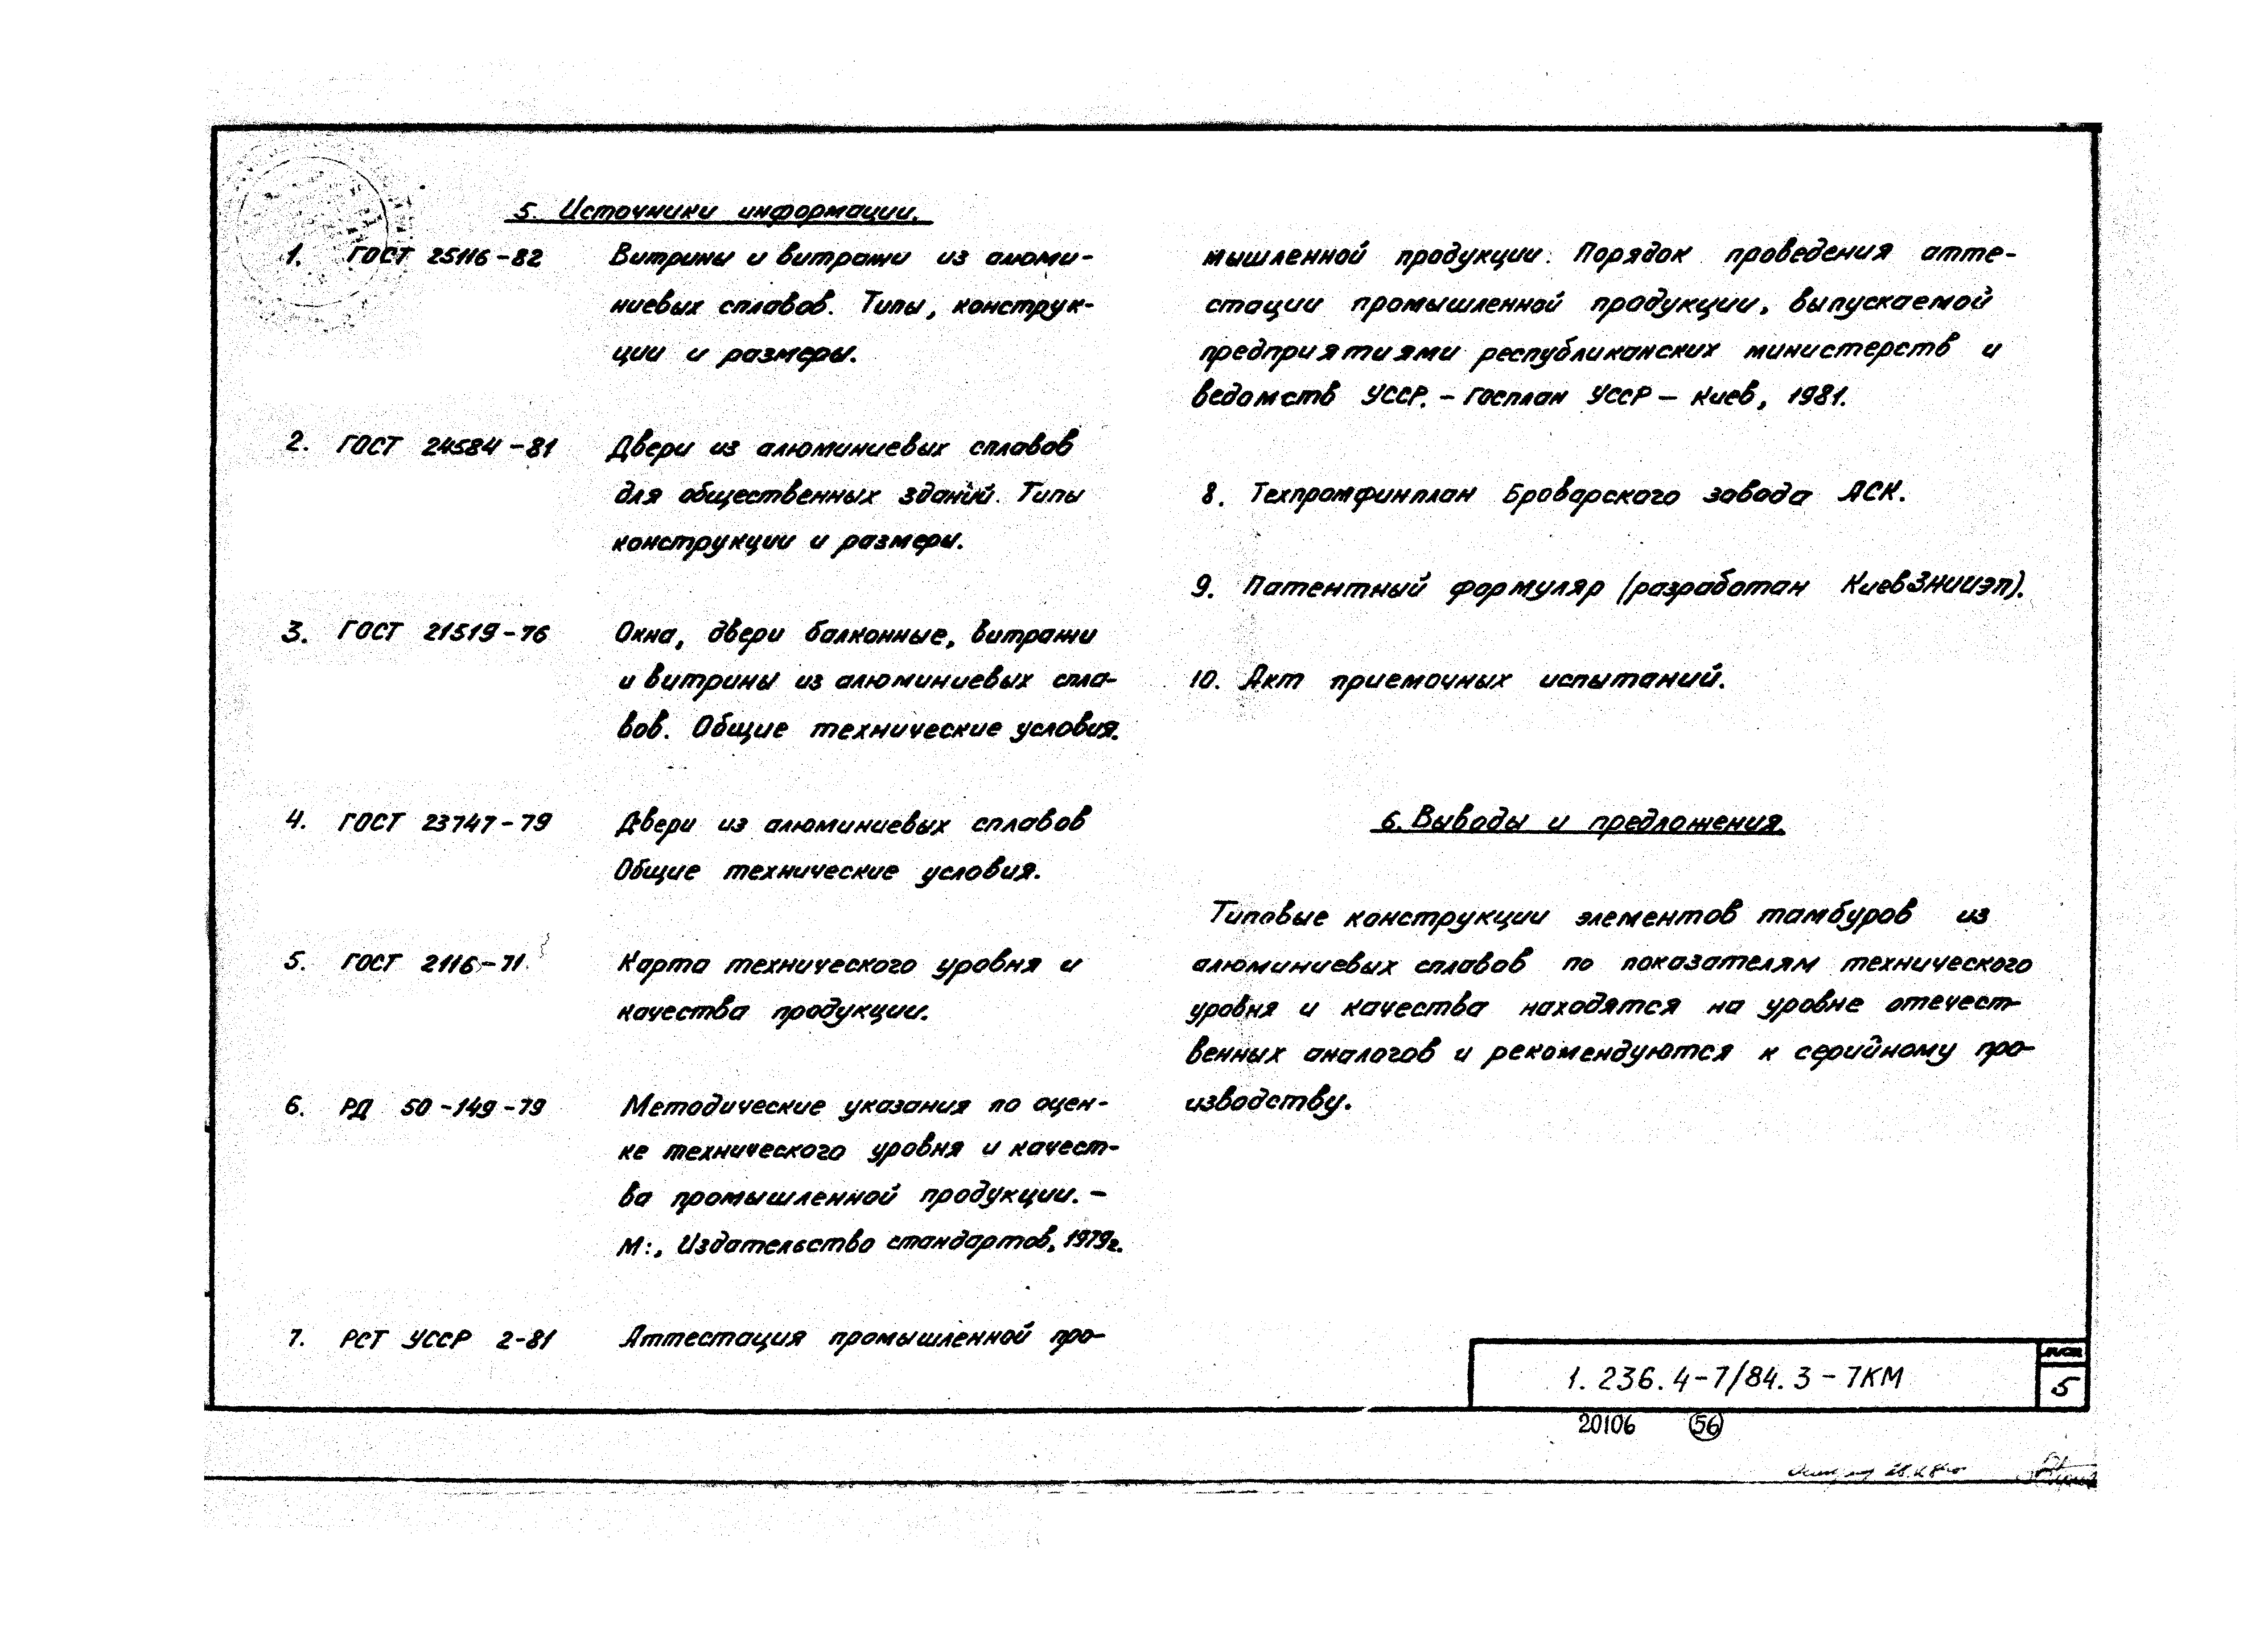 5. Источники информации.
1. ГОСТ 25116-82 Витрины и витражи из алюми-
ниевых сплавов. Типы, конструк-
ции и размеры.
2. ГОСТ 24584-81 Двери из алюминиевых сплавов
для общественных зданий. Типы
конструкции и размеры.
3. ГОСТ 21519-76 Окна, двери балконные, витражи
и витрины из алюминиевых спла-
вов. Общие технические условия.
4. ГОСТ 23747-79 Двери из алюминиевых сплавов
Общие технические условия.
5. ГОСТ 2116-71 Карта технического уровня и
качества продукции.
6. РД 50-149-79 Методические указания по оцен-
ке технического уровня и качест-
ва промышленной продукции. –
М:, Издательство стандартов, 1979г.
7. РСТ УССР 2-81 Аттестация промышленной про-
мышленной продукции. Порядок проведения атте-
стации промышленной продукции, выпускаемой
предприятиями республиканских министерств и
ведомств УССР. – Госплан УССР – Киев, 1981.
8. Техпромфинплан Броварского завода АСК.
9. Патентный формуляр (разработан КиевЗНИИЭП).
10. Акт приемочных испытаний.
6. Выводы и предложения.
Типовые конструкции элементов тамбуров из
алюминиевых сплавов по показателям технического
уровня и качества находятся на уровне отечест-
венных аналогов и рекомендуются к серийному про-
изводству.
1.236.4-7/84.3-7КМ
лист
5
20106 56